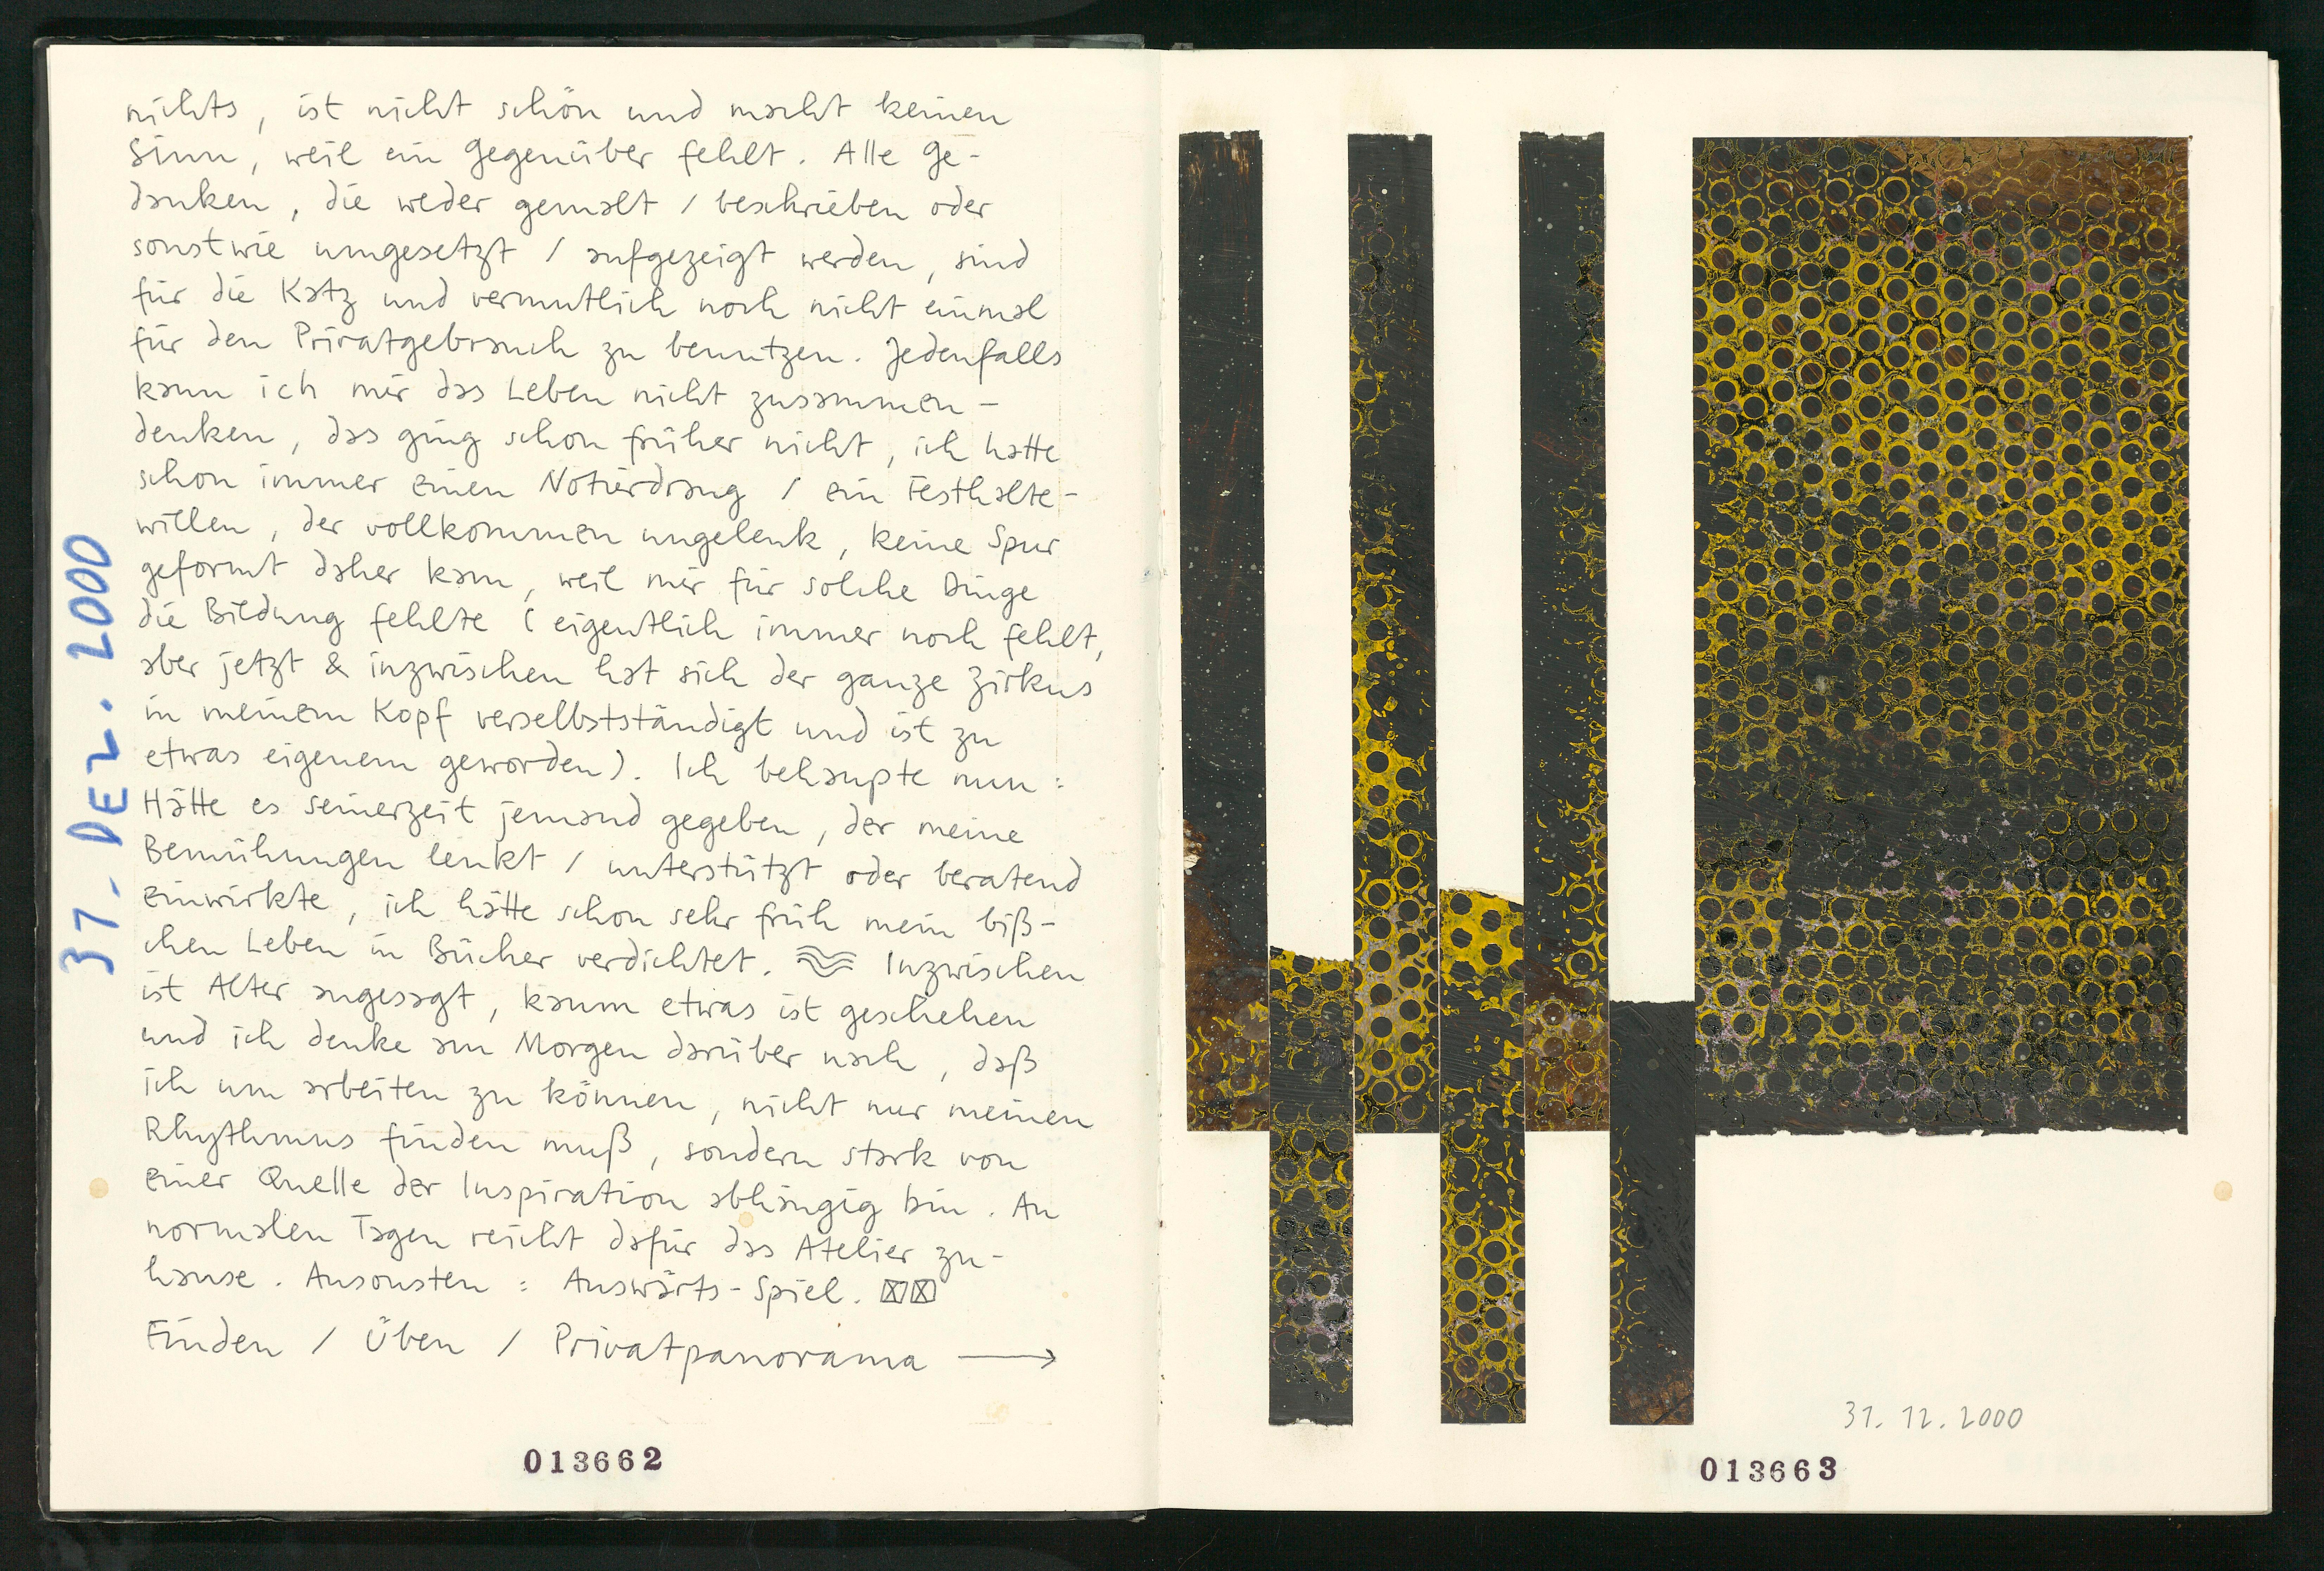 nichts, ist nicht schön und macht keinen
Sinn, weil ein Gegenüber fehlt. Alle Ge-
danken, die weder gemalt / beschrieben oder
sonstwie umgesetzt / aufgezeigt werden, sind
für die Katz und vermutlich noch nicht einmal
für den Privatgebrauch zu benutzen. Jedenfalls
kann ich mir das Leben nicht zusammen-
denken, das ging schon früher nicht, ich hatte
schon immer einen Notierdrang / ein Festhalte-
willen, der vollkommen ungelenk, keine Spur
geformt daher kam, weil mir für solche Dinge
die Bildung fehlte (eigentlich immer noch fehlt,
aber jetzt & inzwischen hat sich der ganze Zirkus
in meinem Kopf verselbstständigt und ist zu
etwas eigenem geworden). Ich behaupte nun:
Hätte es seinerzeit jemand gegeben, der meine
Bemühungen lenkt / unterstützt oder beratend
einwirkte, ich hätte schon sehr früh mein biß-
chen Leben in Bücher verdichtet. Inzwischen
ist Alter angesagt, kaum etwas ist geschehen
und ich denke am Morgen darüber nach, daß
ich um arbeiten zu können, nicht nur meinen
Rhythmus finden muß, sondern stark von
einer Quelle der Inspiration abhängig bin. An
normalen Tagen reicht dafür das Atelier zu-
hause. Ansonsten: Auswärts-Spiel. ☒☒
Finden / Üben / Privatpanorama →
31. DEZ. 2000
013662
31.12.2000
013663